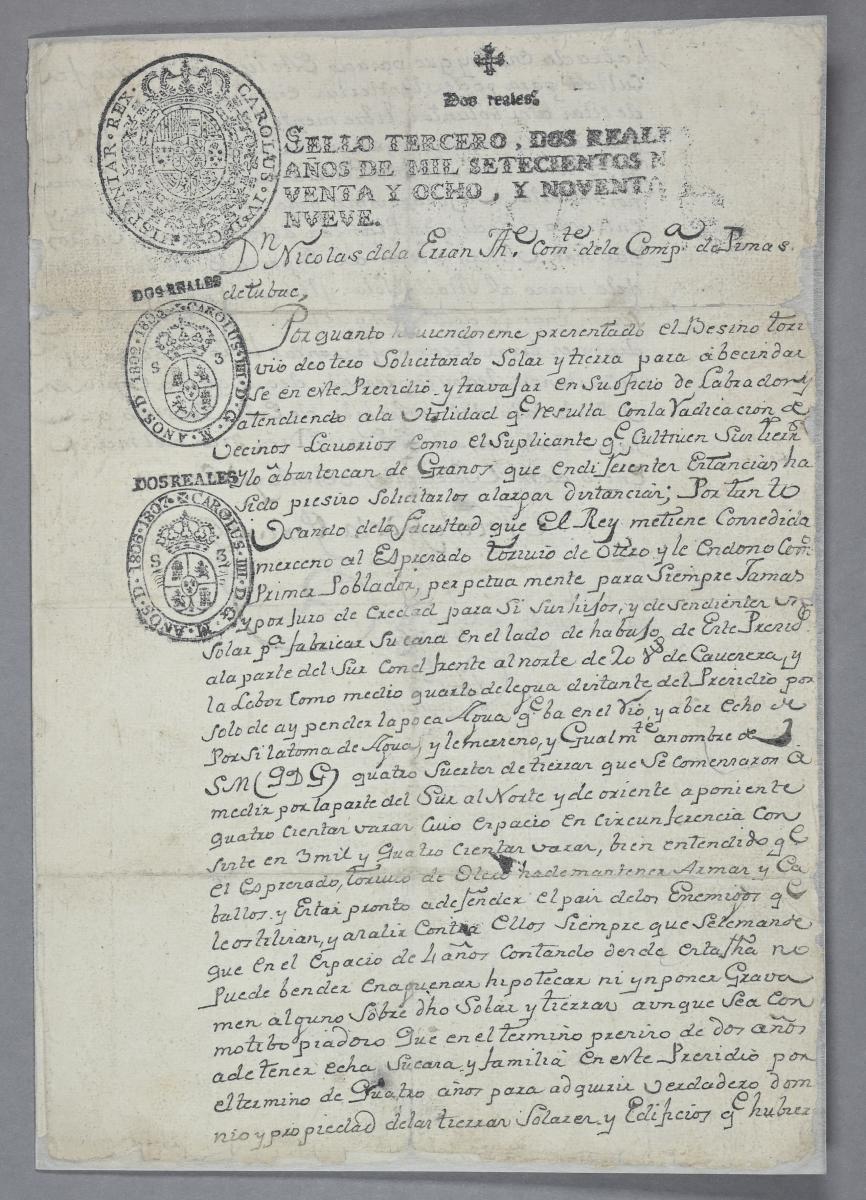 Dos reales.
CAROLUS·IV·D·G·HISPANIAR·REX·
SELLO TERCERO, DOS REALE
AÑOS DE MIL SETECIENTOS N
VENTA Y OCHO, Y NOVENTA
NUEVE.
Dn Nicolas dela Erran The. Comte. dela Compa. de Pimas
de tubac,
DOS REALES
CAROLUS·IIII·D·G·M·AÑOS·D·1802·1803·
S 3
DOS REALES
CAROLUS·IIII·D·G·M·AÑOS·D·1806·1807·
S 3
Por quanto haviendoseme presentado el Besino tori
vio de otero Solicitando Solar y tierra para abecindar
se en este Presidio, y travajar en Su oficio de Labrador, y
atendiendo ala Utilidad qe. resulta con la radicacion de
Vecinos Lavorios como el Suplicante qe. Cultiven Sus tierrs
y lo abastescan de Granos que en diferentes Estancias ha
Sido presiso Solicitarlos a largas distancias; Por tanto
Usando dela facultad que El Rey me tiene Consedida
merceno al Espresado torivio de Otero y le Endono Como
Primer Poblador, perpetua mente para Siempre Jamas
y por Juro de Eredad para Si Sus hijos, y desendientes un
Solar pa. fabricar Su casa en el lado de habajo de Este Presido.
ala parte del Sur con el frente al norte de 20 vs de Cavesera, y
la Labor como medio quarto de legua distante del Presidio por
Solo de ay pender la poca Agua qe. ba en el rio, y aber echo de
Por Si la toma de Agua, y le merseno, y Gualmte. a nombre de
SM (QDG) quatro Suertes de tierras que Se comensaron á
medir por la parte del Sur al Norte y de oriente aponiente
quatro cientas varas Cuio espacio en Circunferencia Con
siste en 3 mil y quatro cientas varas, bien entendido qe.
el Espresado, torivio de Otero ha de mantener Armas y Ca
ballos, y Estar pronto a defender el pais delos Enemigos qe.
le ostilisan, y a salir Contra Ellos Siempre que Se le mande
que En el Espacio de 4 años Contando desde esta fha no
Puede bender enaguenar hipotecar ni ynponer Grava
men alguno Sobre dho Solar y tierras aunque Sea Con
motibo piadoso Que en el termino presiso de dos años
a de tener echa Su casa, y familia en este Presidio por
el termino de Quatro años para adquirir verdadero dom
nio y propiedad delas tierras Solares, y Edificios qe. hubier